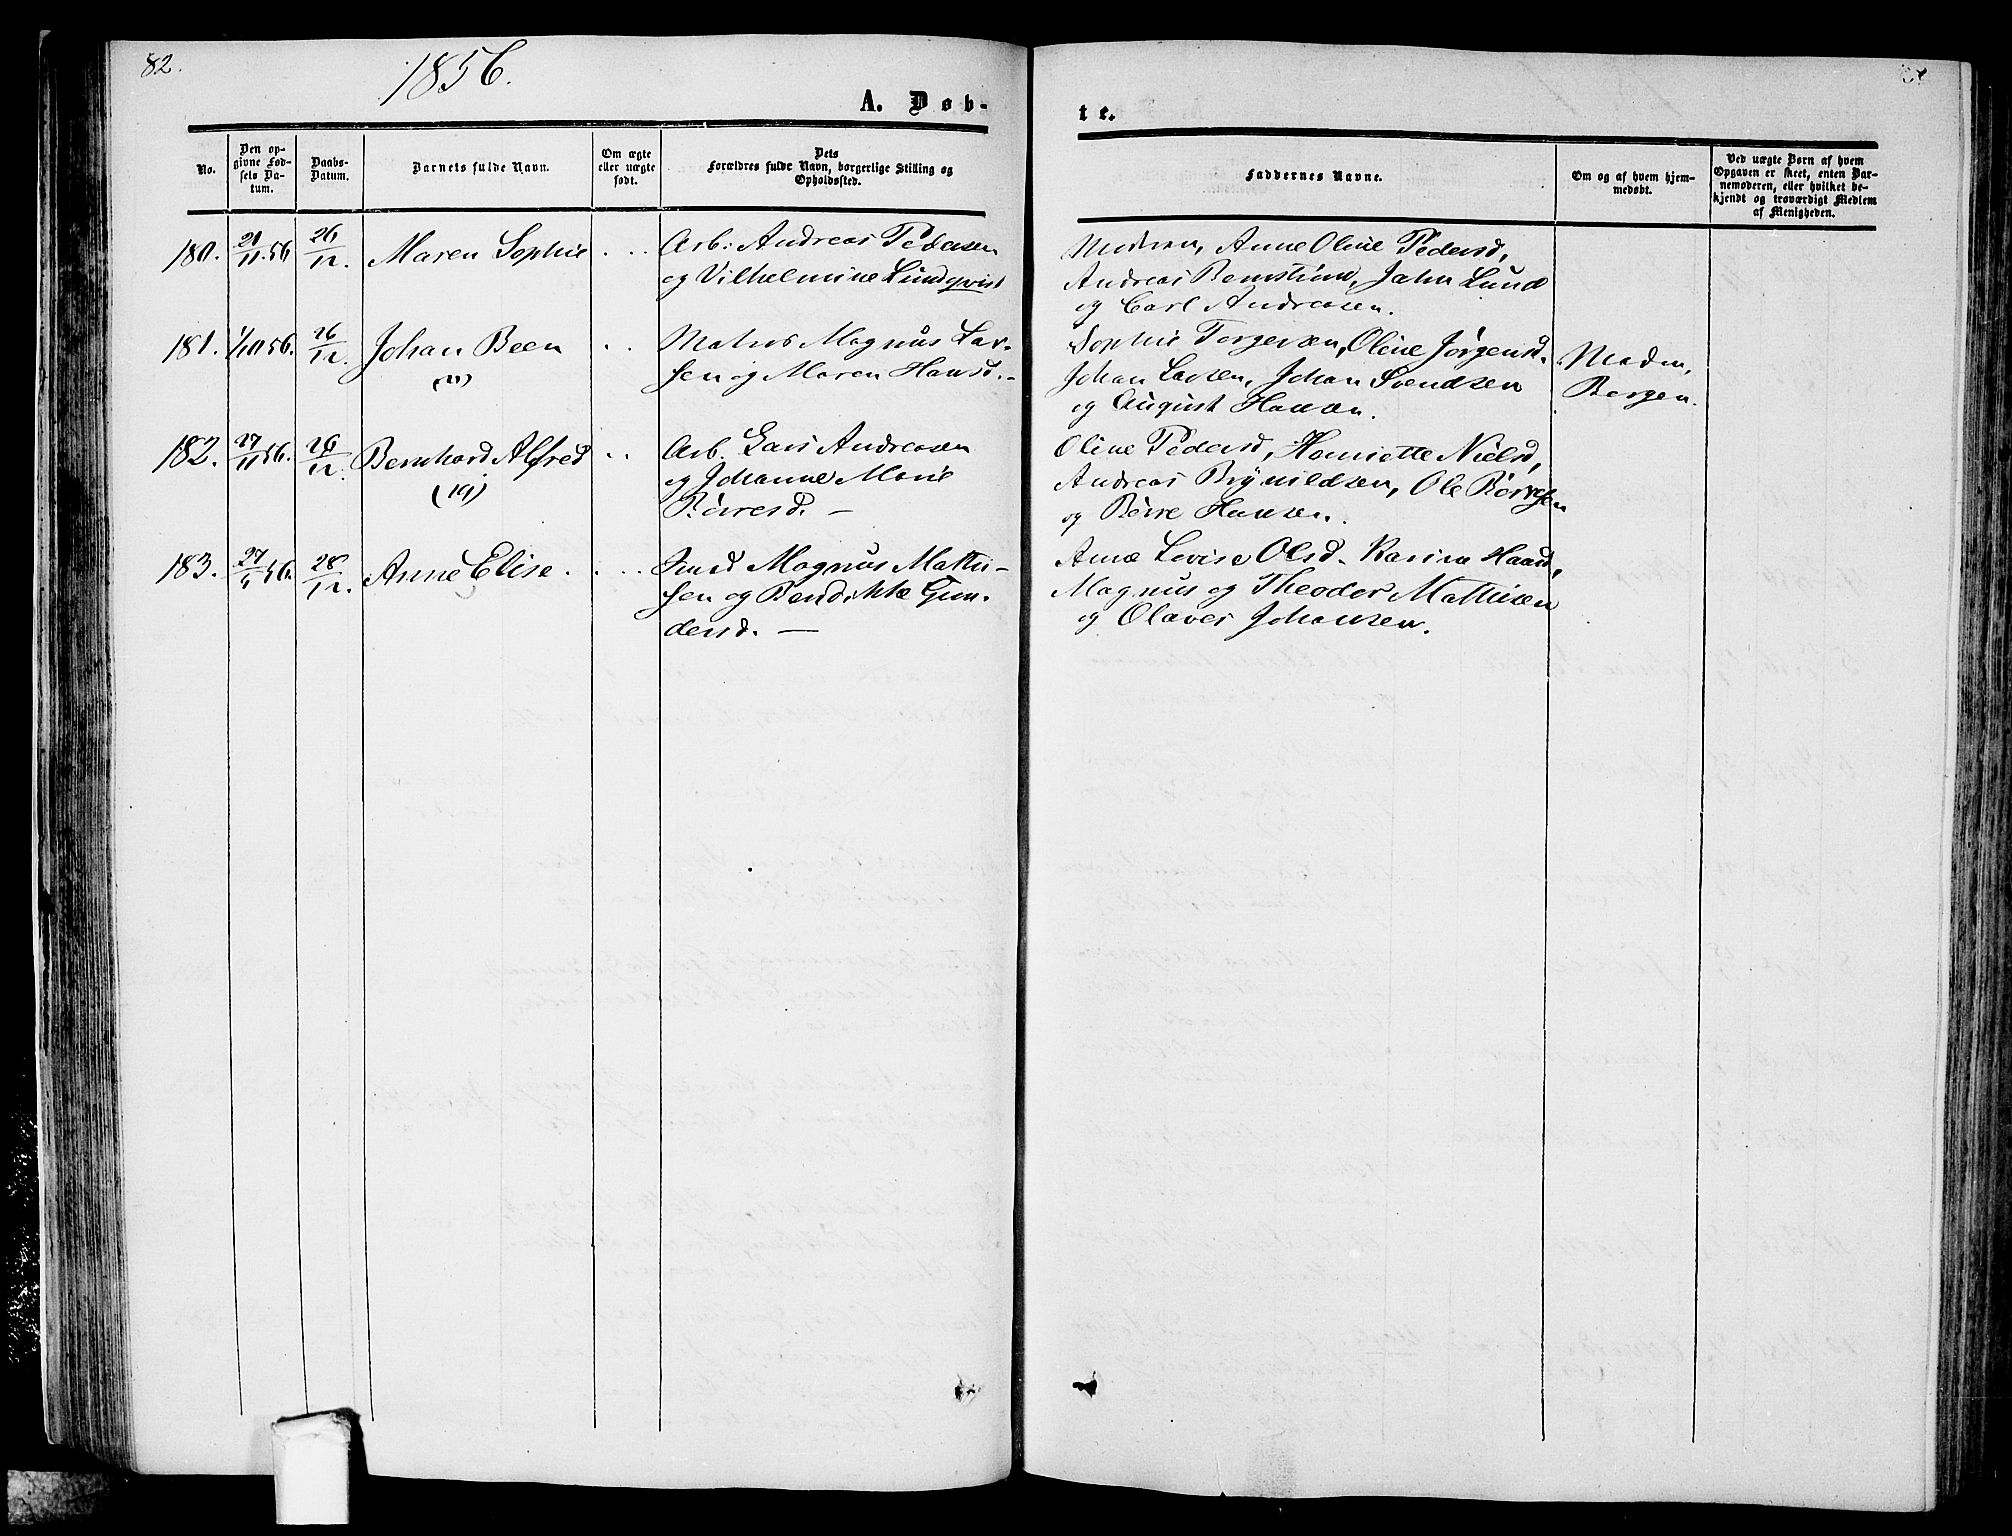 82.
1856.
A. Døb-
te.
No.
Den op-
givne Fød-
sels Da-
tum.
Daabs-
Datum.
Barnets fulde Navn.
Om ægte
eller uægte
født.
Dets
Forældres fulde Navn, borgerlige Stilling og
Opholdssted.
Faddernes Navne.
Om og af hvem hjem-
medøbt.
Ved uægte Børn af hvem
Opgaven er skeet, enten Bar-
nemoderen, eller hvilket be-
kjendt og troværdigt Medlem
af Menigheden.
180. 56 26/12. Maren Sophie
Arb: Andreas Pedersen
og Vilhelmine Lundqvist
Modren, Anne Oline Pedersd,
Andreas John Lund
og Carl Andreasen.
181. 1/10 56. 26/12. Johan Been
(11)
Magnus Lar-
sen og Maren Hansd.
Sophie Torgersen, Oline Jørgensd.
Johan Larsen, Johan Svendsen
og August Hansen.
Borgen.
182. 27/11 56. 26/12. Bernhard Alfred
(19)
Arb. Lars Andreasen
og Johanne Marie
Börresd. –
Oline Pedersd, Henriette Nielsd,
Andreas Brynildsen, Ole Börresen
og Börre Hansen.
183. 27/ 56. 28/12. Anne Elise.
Knud Magnus Mathi-
sen og Bendikte Gun-
dersd. –
Anne Lovise Olsd. Karine
Magnus og Theodor Mathisen
og Olaves Johansen.